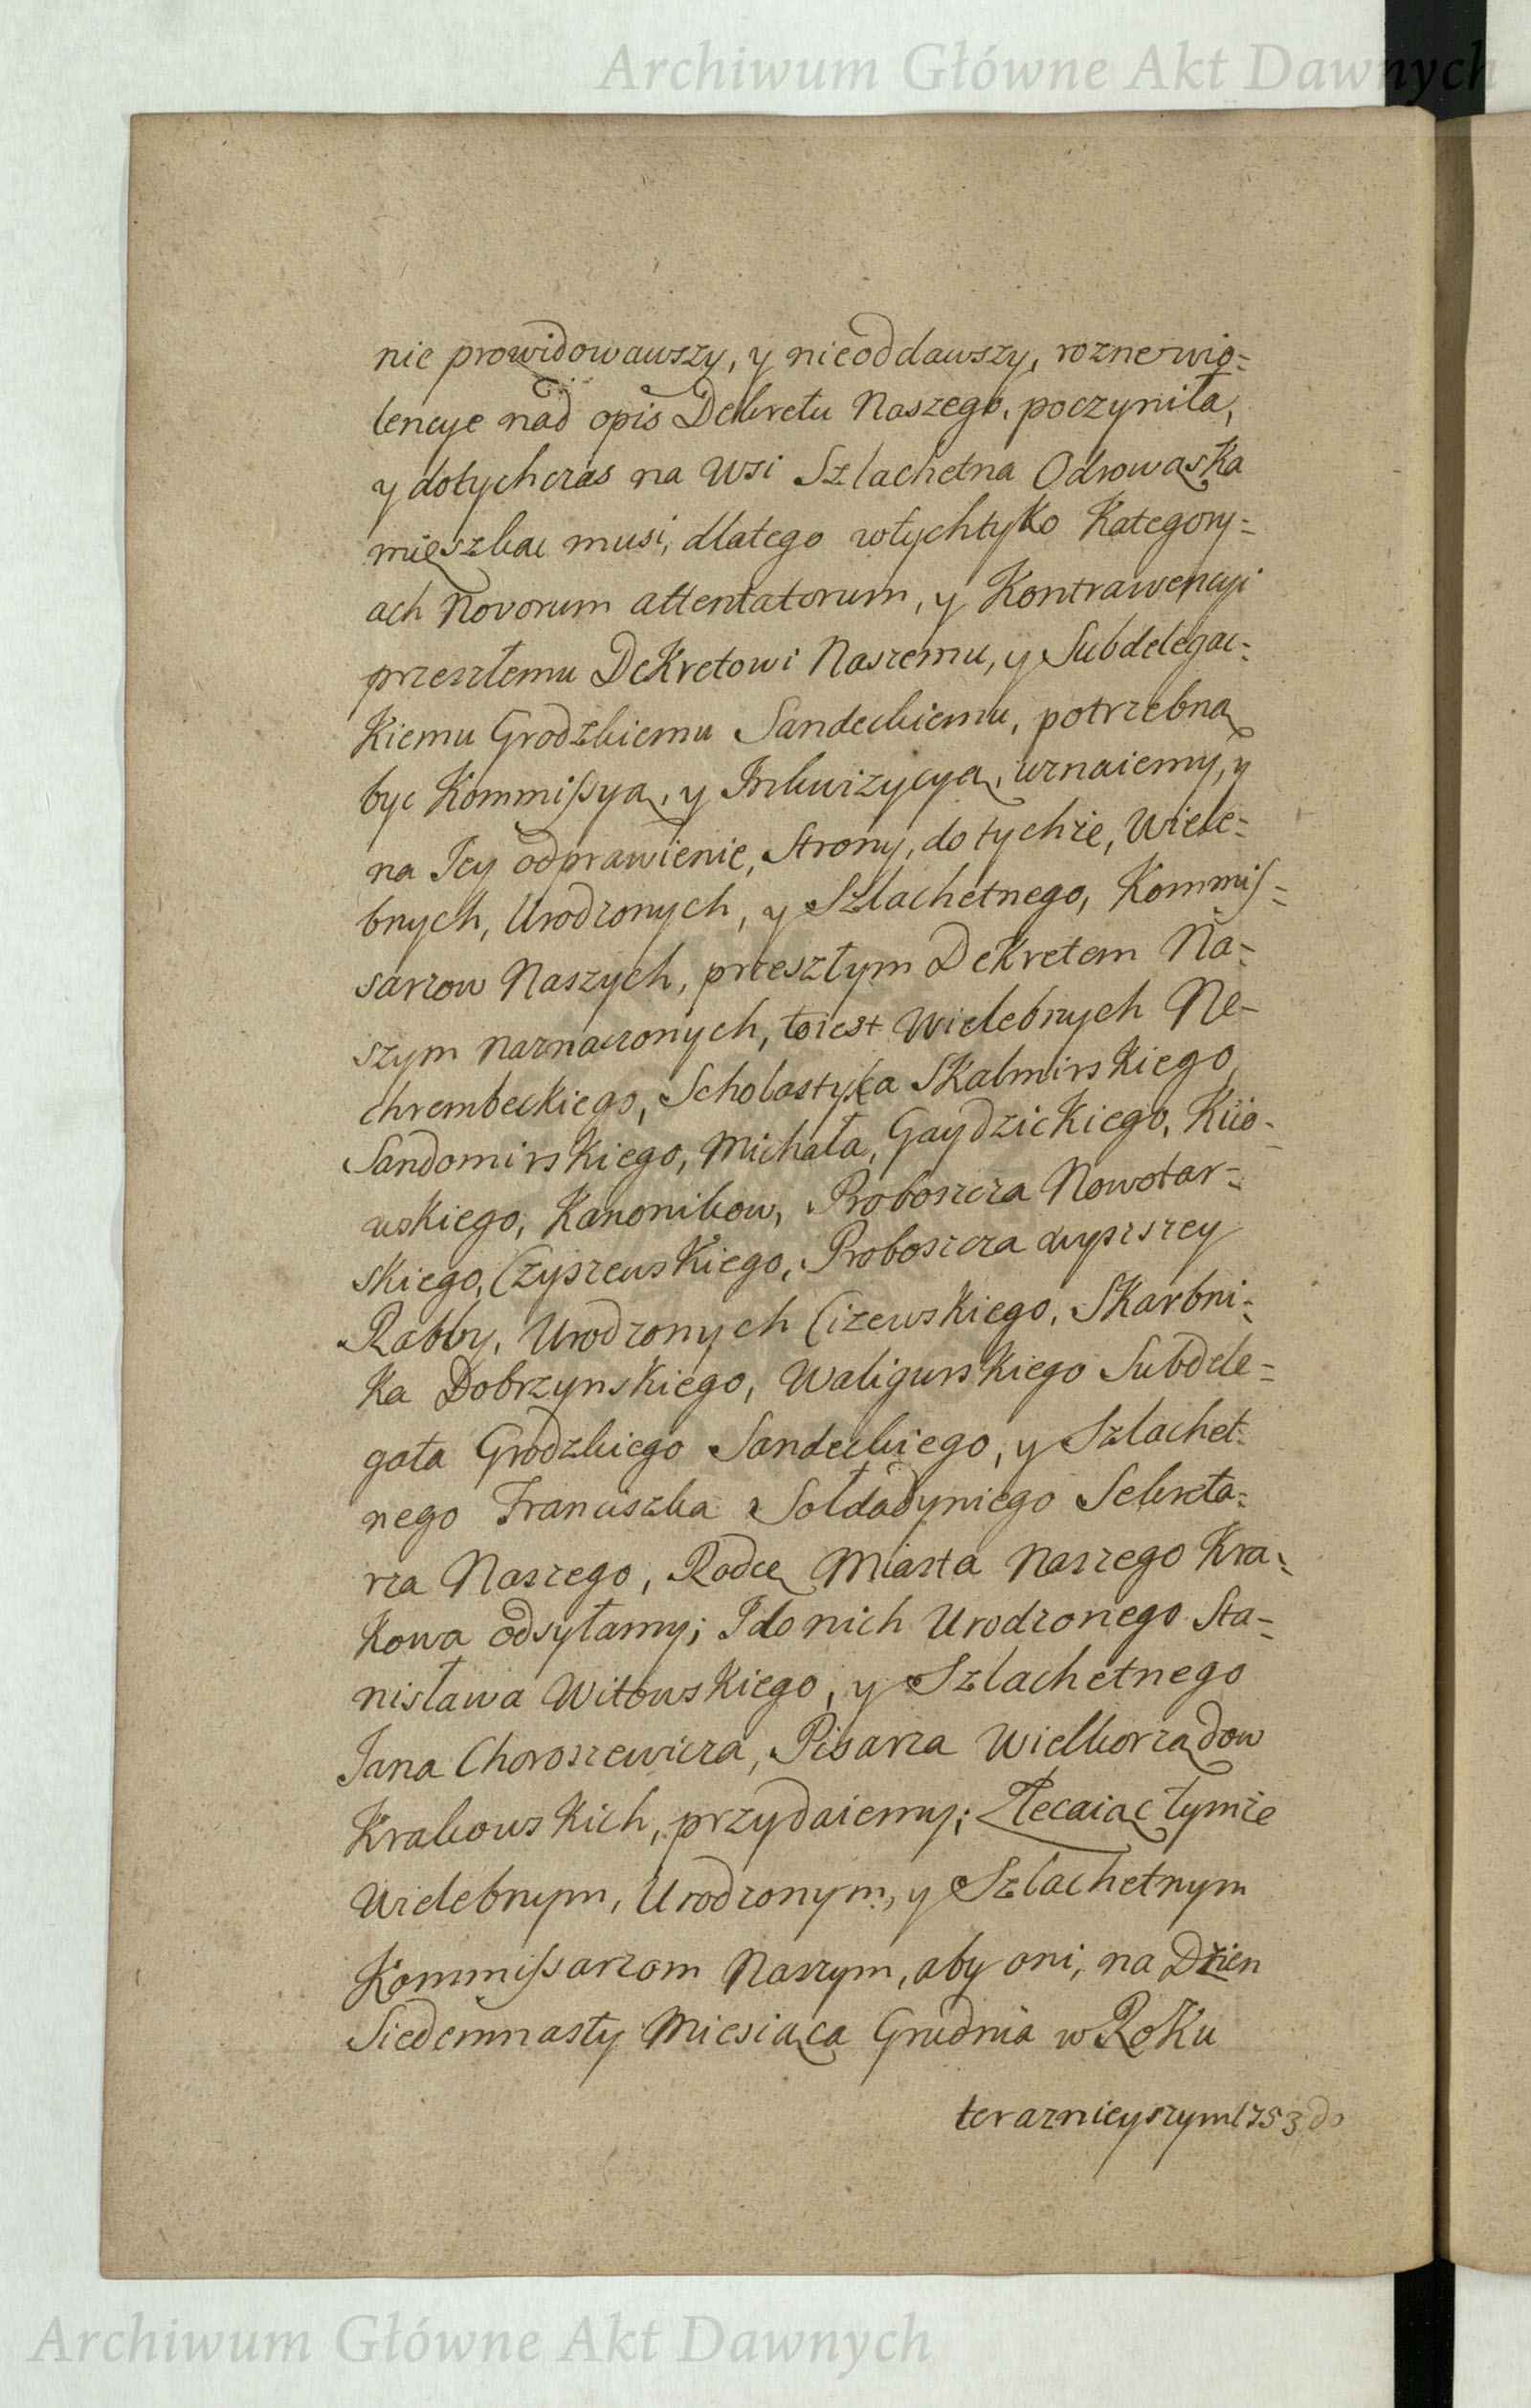 Archiwum Główne Akt Dawnych
nie prowidowawszy, y nieoddawszy, rozne wio=
lencye nad opis Dekretu Naszego, poczyniła,
y dotychczas na Wsi Szlachetna Odrowąska
mięszkac musi, dlatego wtychtyko Kategory=
ach Novorum attentatorum, y Kontrawencyi
przeszłemu DeKretowi Naszemu, y Subdelegac=
Kiemu Grodzkiemu Sandeckiemu, potrzebną
byc Kommissyą, y Inkwizycyą, uznaiemy, y
na Jey odprawienie, Strony, do tychże, Wiele=
bnych, Urodzonych, y Szlachetnego, Kommis=
sarzow Naszych, przeszłym DeKretem Na=
szym naznaczonych, toiest Wielebnych Ne=
chrembeckiego, Scholastyka SKalmirsKiego,
SandomirsKiego, Michała, GaydzicKiego, Kiio=
wskiego, Kanonikow, Proboszcza Nowotar=
skiego, CzyszewsKiego, Proboszcza wyższey
Rabby, Urodzonych CizewsKiego, SKarbni=
Ka DobrzynsKiego, WaligursKiego Subdele=
gata Grodzkiego Sandeckiego, y Szlachet=
nego Franciszka Sołdadyniego Sekreta=
rza Naszego, Radcę Miasta Naszego Kra=
Kowa odsyłamy; I do nich Urodzonego Sta=
nisława WitowsKiego, y Szlachetnego
Jana Choroszewicza, Pisarza Wielkorządow
KrakowsKich, przydaiemy; Zlecaiąc tymże
Wielebnym, Urodzonym, y Szlachetnym
Kommissarzom Naszym, aby oni, na Dzien
Siedemnasty Miesiąca Grudnia w RoKu
teraznieyszym 1753 do
Archiwum Główne Akt Dawnych